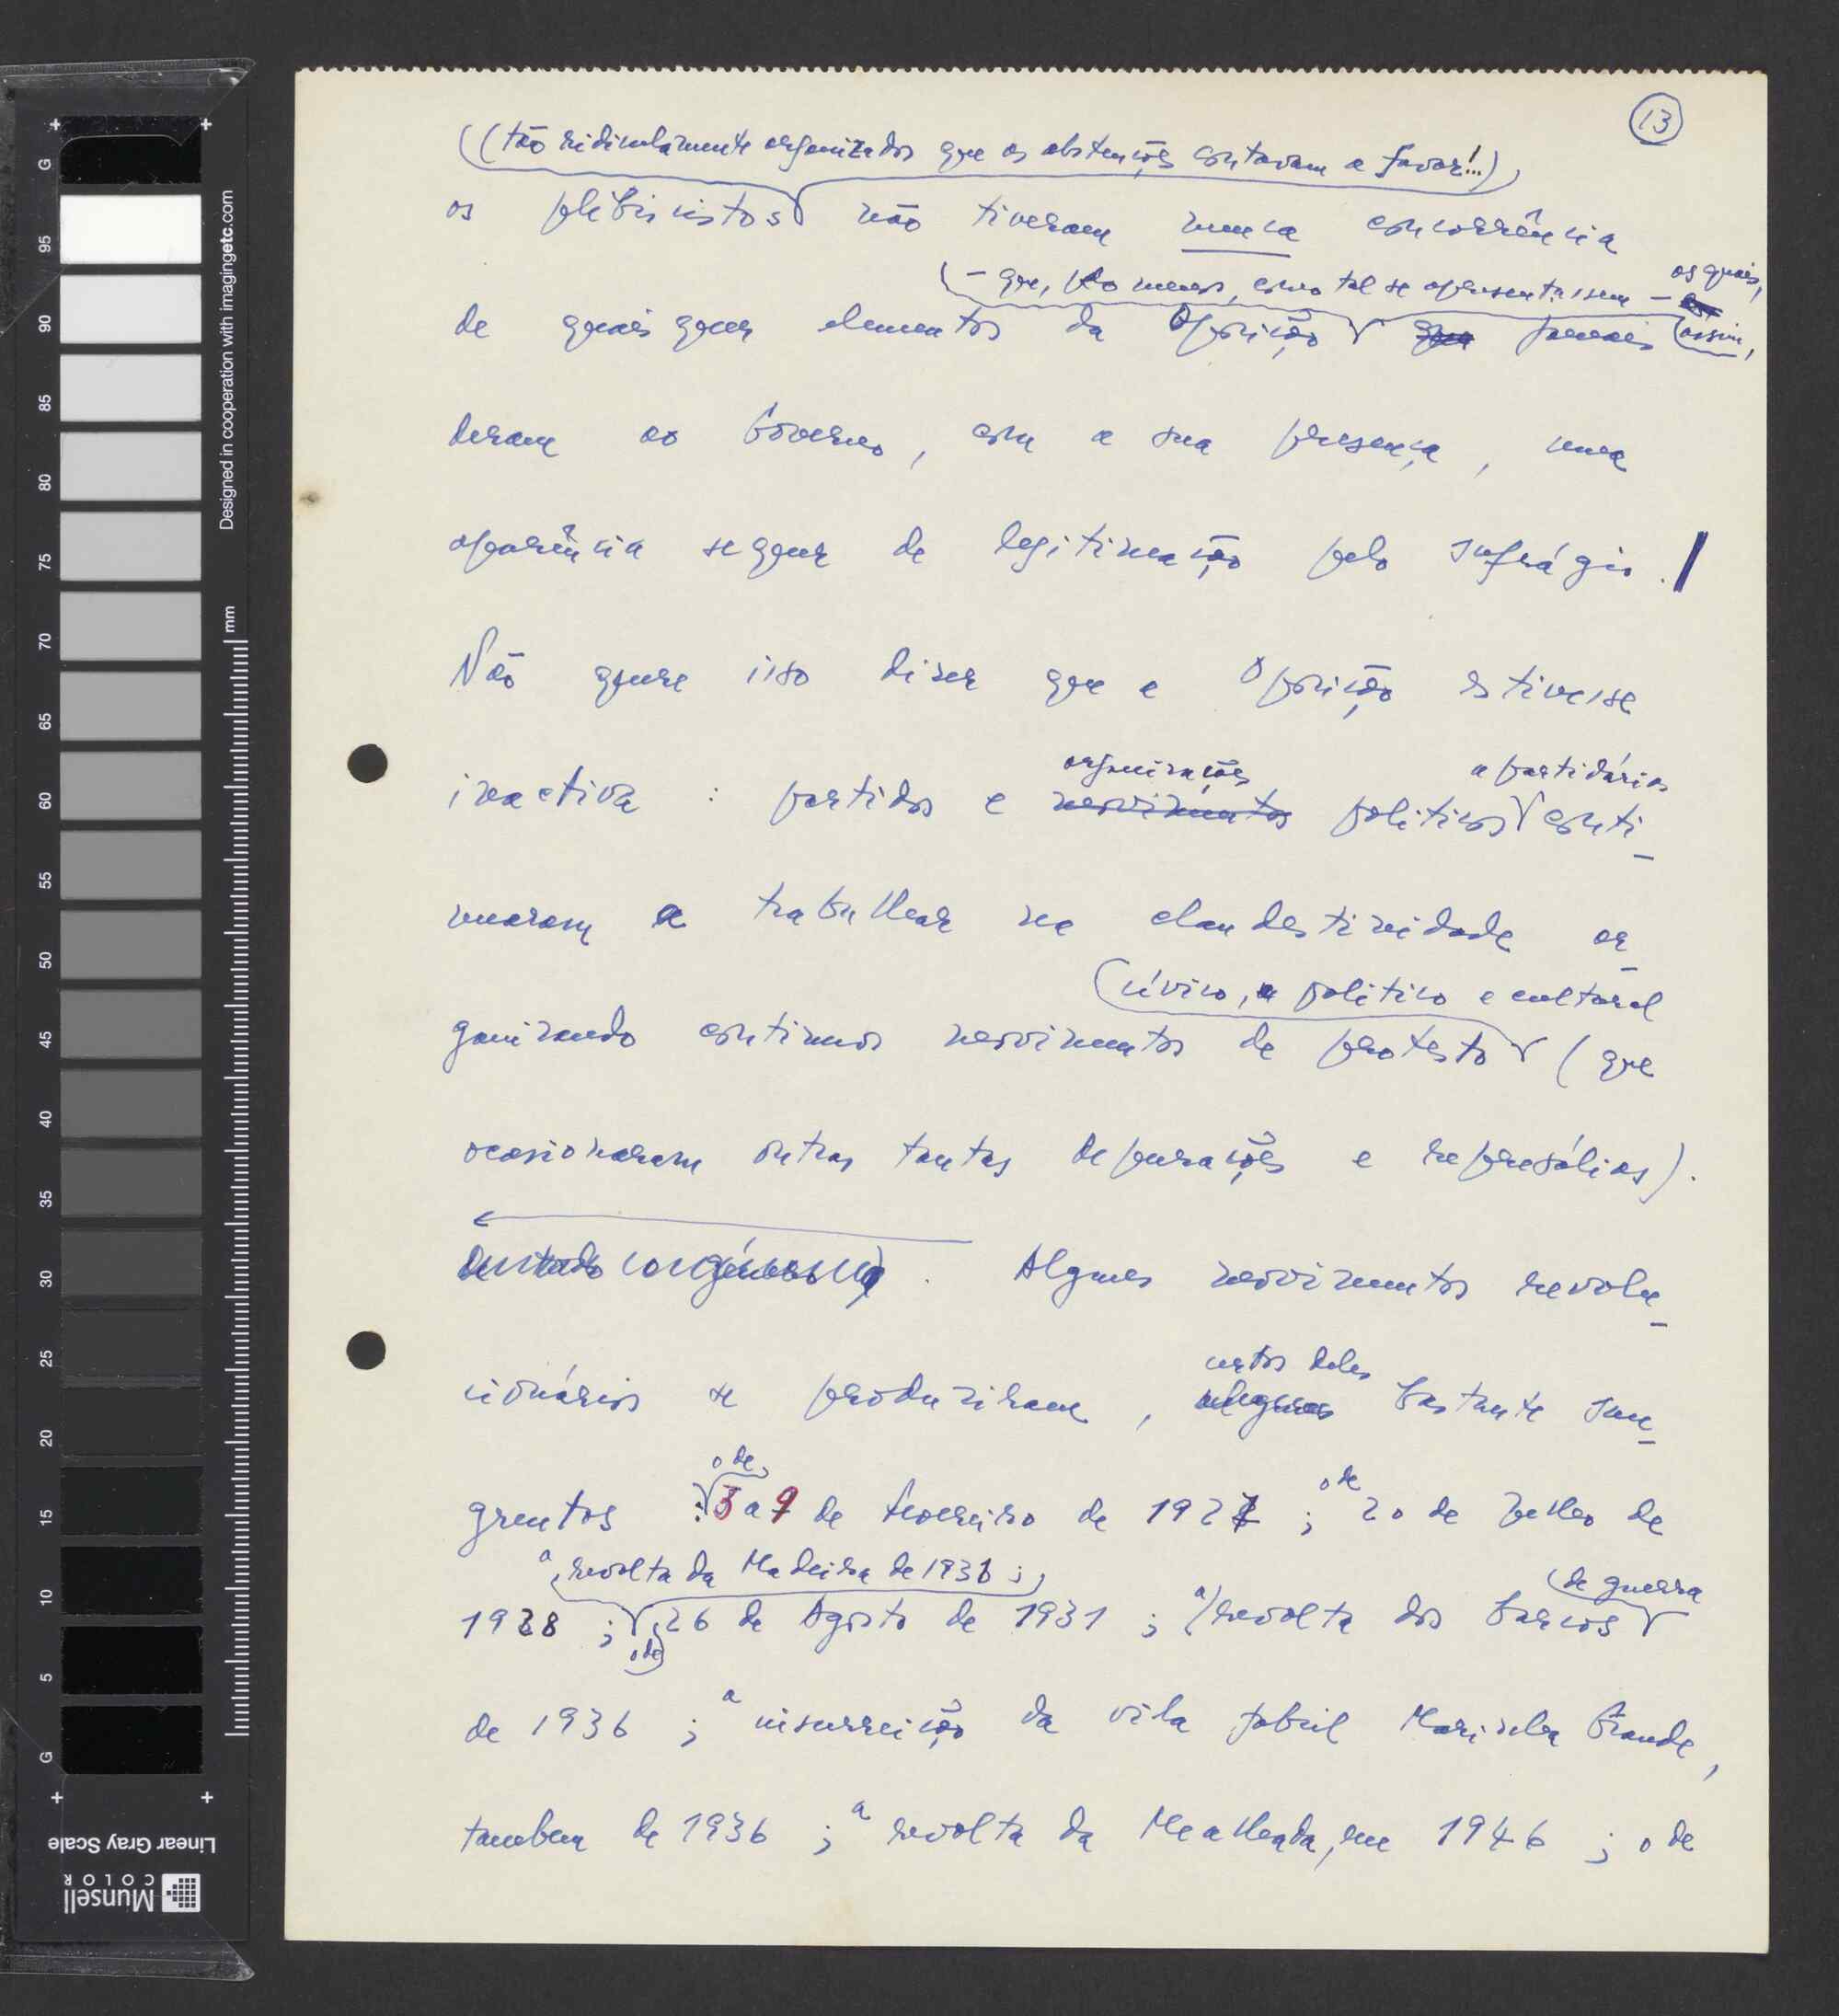 13
(tão ridiculamente organizados que as abstenções contavam a favor!...)
os plebiscitos não tiveram nunca concorrência
- que, ao menos, como tal se apresentassem - os quais,
de quaisquer elementos da Oposição que jamais assim,
deram ao Governo, com a sua presença, uma
aparência sequer de legitimação pelo sufrágio.
Não quere isso dizer que a Oposição estivesse
organizações apartidárias
inactiva : partidos e movimentos politicos conti-
nuaram a trabalhar na clandestinidade or-
cívico, politico e cultural
ganizando contínuos movimentos de protesto (que
ocasionaram outras tantas depurações e represálias).
Alguns movimentos revolu-
certos deles
cionários se produziram, alguns bastante san-
o de
grentos : 3 a 9 de fevereiro de 1927 ; o de 20 de Julho de
a revolta da Madeira de 1931 ; de guerra
1928 ; 26 de Agosto de 1931 ; a revolta dos barcos
o de
de 1936 ; a insurreição da vila fabril Marinha Grande,
tambem de 1936 ; a revolta da Mealhada, em 1946 ; o de
Designed in cooperation with imagingetc.com
mm
G
95
90
85
80
75
70
65
60
55
50
45
40
35
30
25
20
15
10
5
G
Linear Gray Scale
Munsell
COLOR